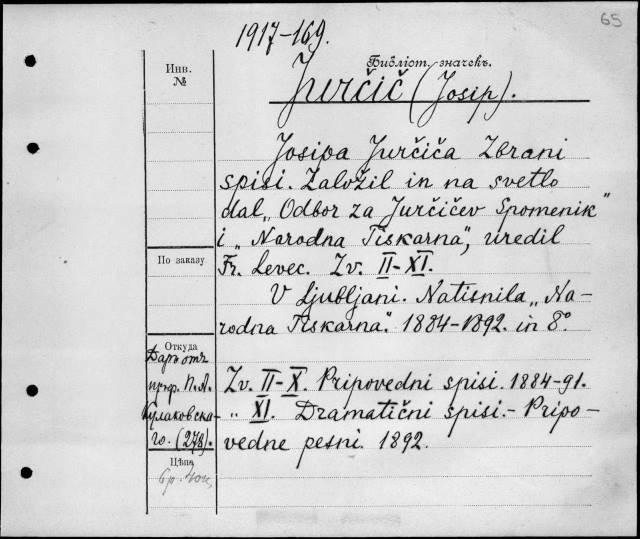 65
1917-169.
Библіот. значекъ.
Инв.
№
Jurčič (Josip).
Josipa Jurčiča Zbrani
spisi. Založil in na svetlo
dal „Odbor za Jurčičev Spomenik"
i „Narodna Tiskarna", uredil
По заказу
Fr. Levec. Zv. II-XI.
V Ljubljani. Natisnila „Na-
rodna Tiskarna". 1884-1892. in 8°.
Откуда
Даръ отъ
проф. П. А.
Кулаковска-
го. (278).
Zv. II-X. Pripovedni spisi. 1884-91.
„ XI. Dramatični spisi.- Pripo-
vedne pesni. 1892.
Цѣна
6 р. 40 к.